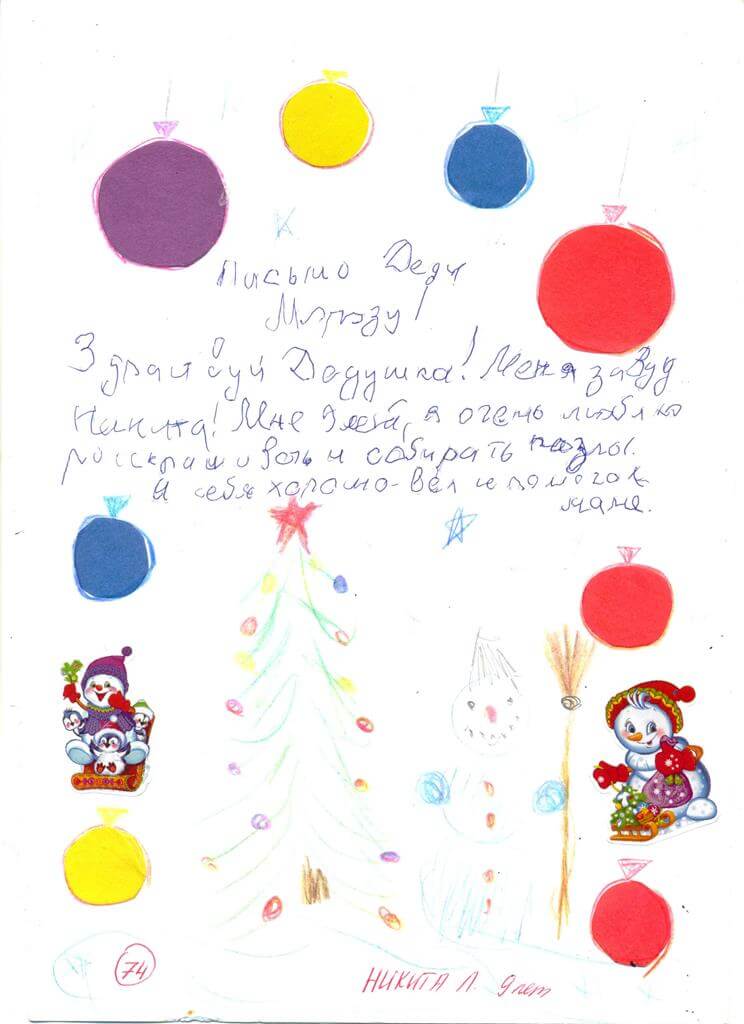 Письмо Деду
Морозу!
Здраствуй Дедушка! Меня завуд
Никита! Мне 9 лет, я очень люблю
росскрашивать и собирать пазлы.
Я себя хорошо вёл и помогал
маме.
74
НИКИТА Л. 9 лет